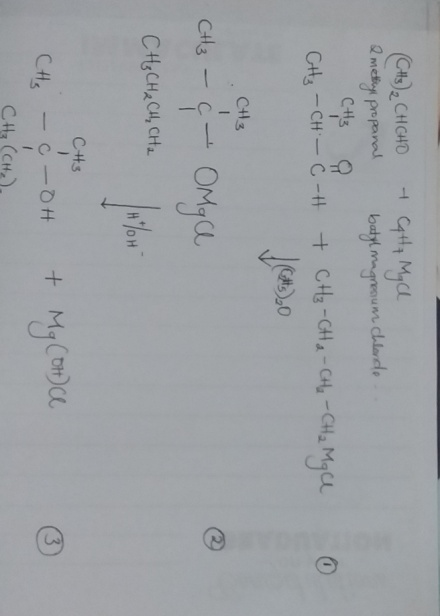 (CH3)2CHCHO + C4H9MgCl
2 methyl propanal butyl magnesium chloride...
CH3 O
CH3 - CH - C - H + CH3 - CH2 - CH2 - CH2 MgCl ①
↓ (C2H5)2O
CH3
CH3 - C - OMgCl ②
CH3CH2CH2CH2
↓ H+/OH-
CH3
CH3 - C - OH + Mg(OH)Cl ③
CH3(CH2)